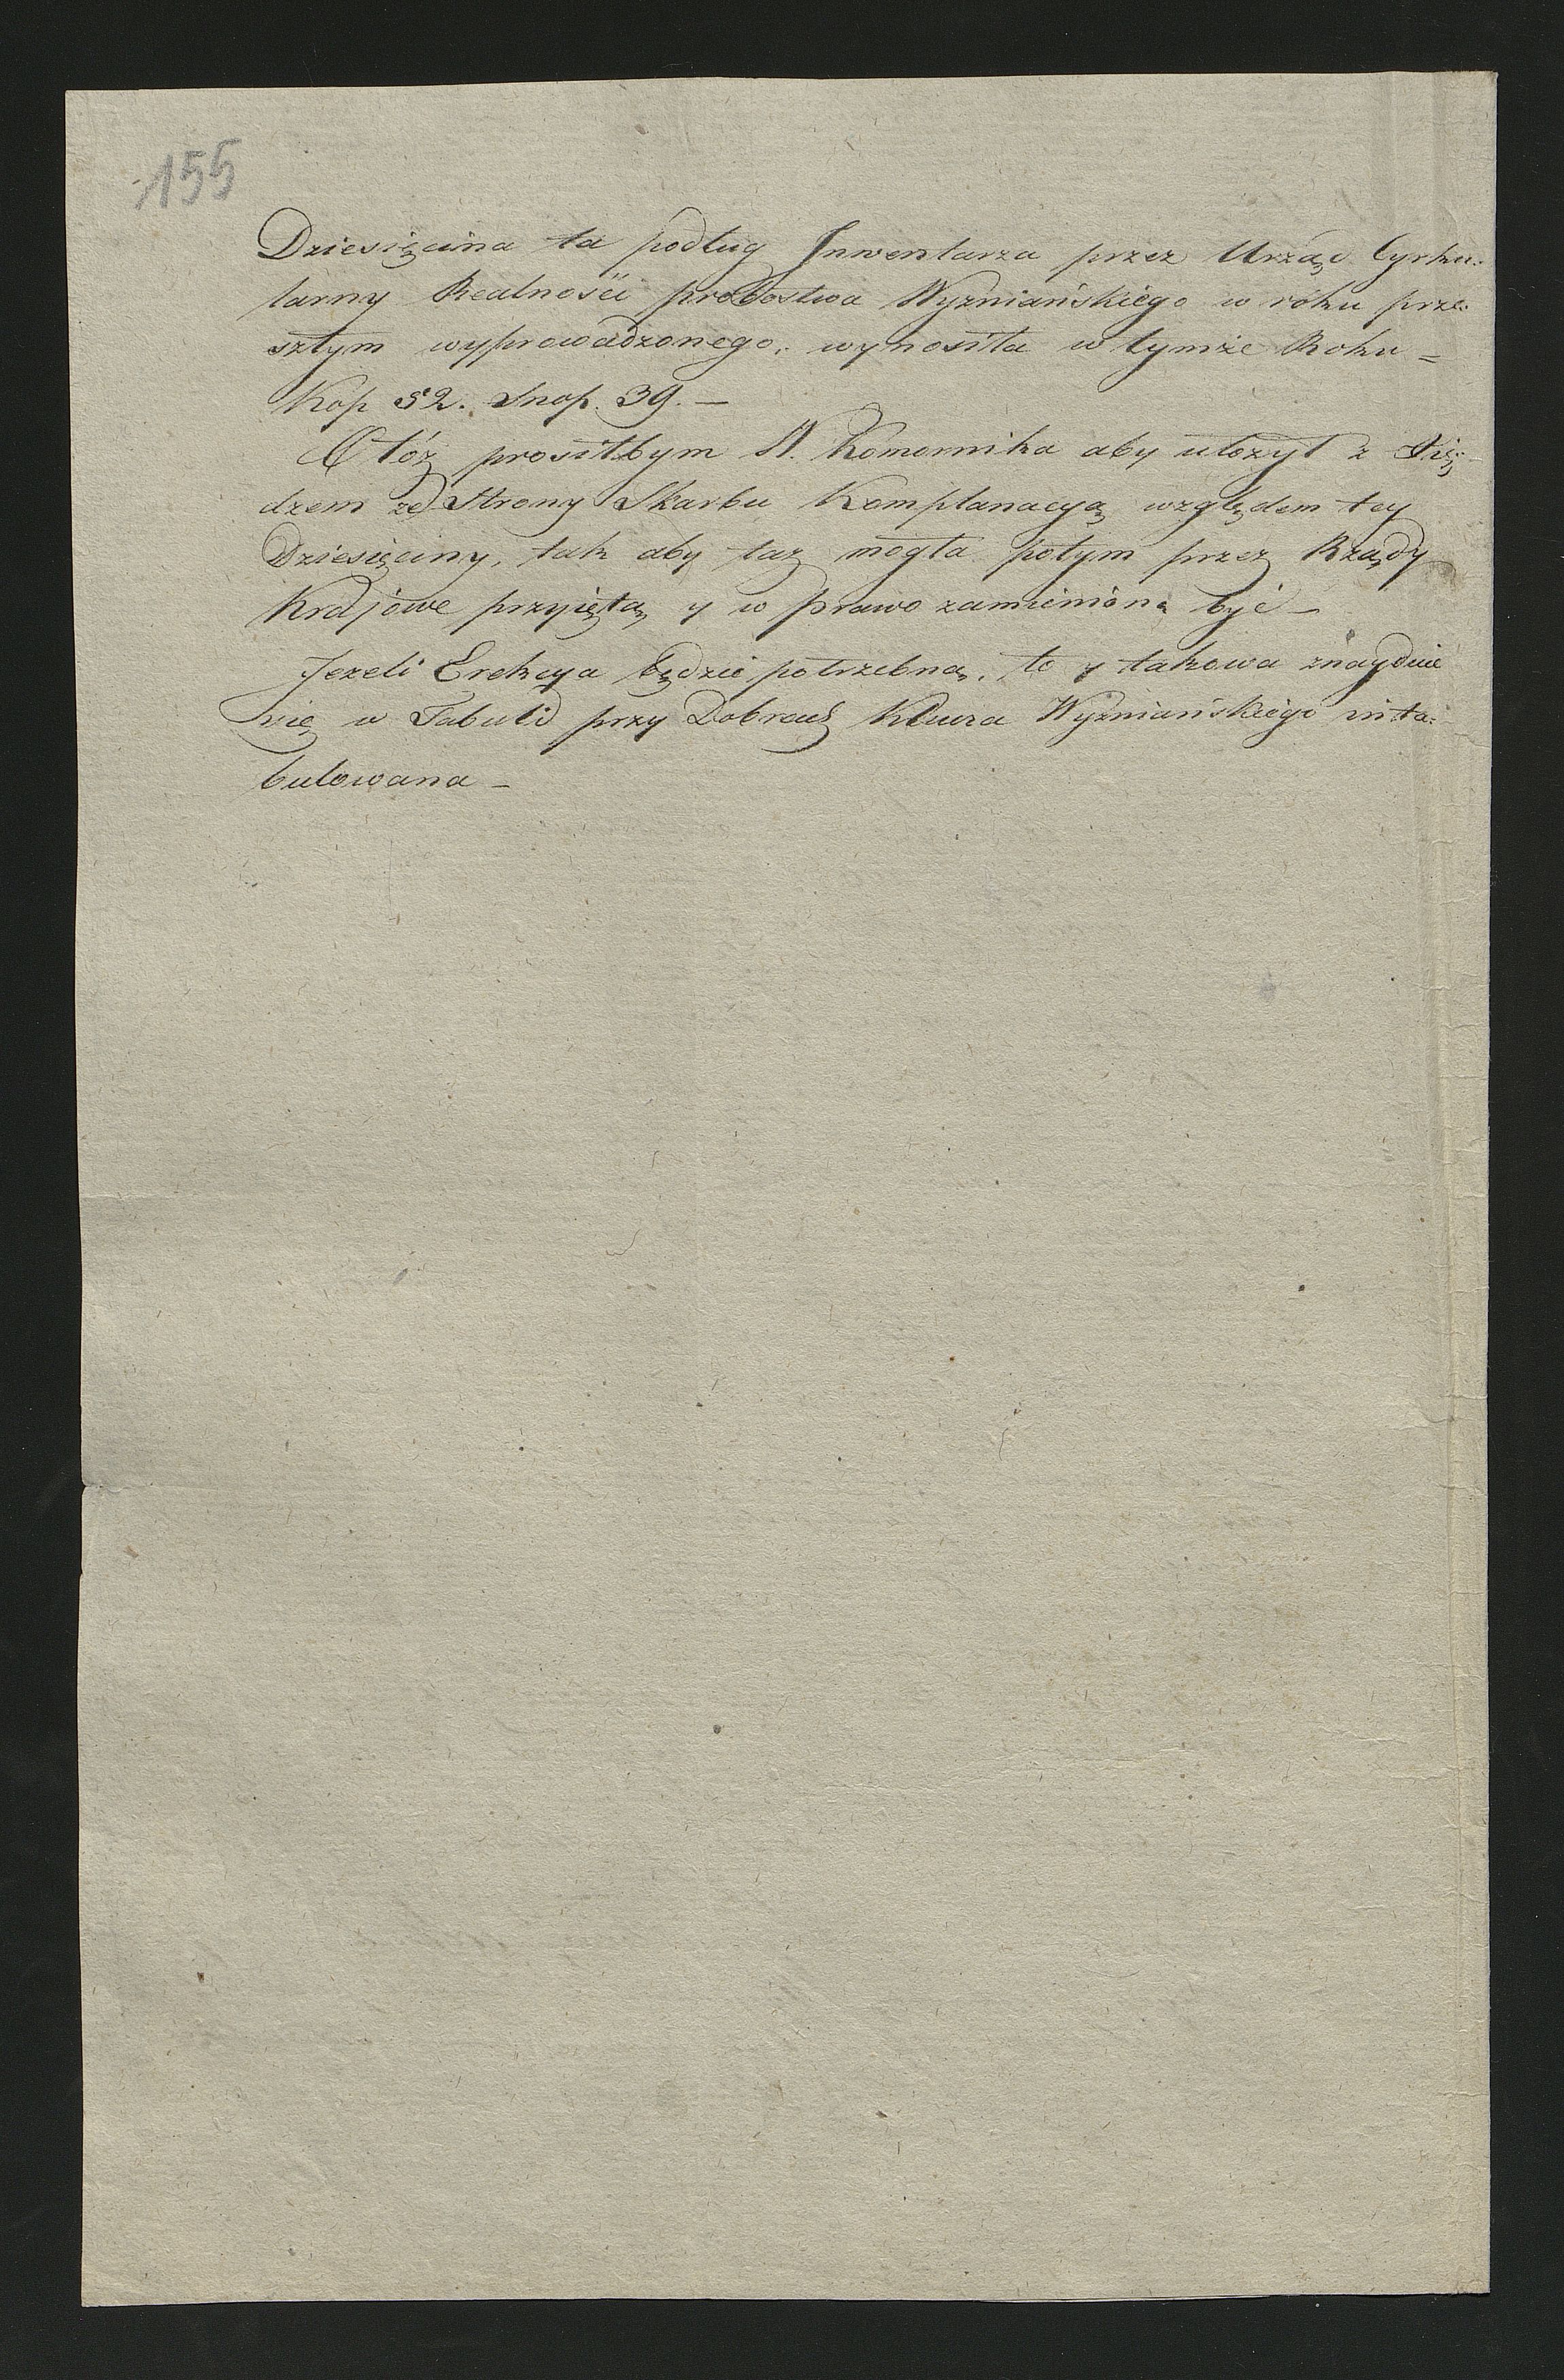 155
Dziesięcina ta podług Inwentarza przez Urząd Cyrku:
larny Realności probostwa Wyżniańskiego w roku prze:
szłym wyprowadzonego, wynosiła w tymże Roku =
Kop 52. Snop. 39. —
Otóż prosiłbym W. Komornika aby ułożył z Xię
dzem ze Strony Skarbu Komplanacyą względem tey
Dziesięciny, tak aby taż mogła potym przez Rządy
Krajowe przyiętą, y w prawo zamienioną być —
Jeżeli Erekcya będzie potrzebną, to y takowa znaydzie
się w Tabuli przy Dobrach Klucza Wyżniańskiego inta:
bulowana —